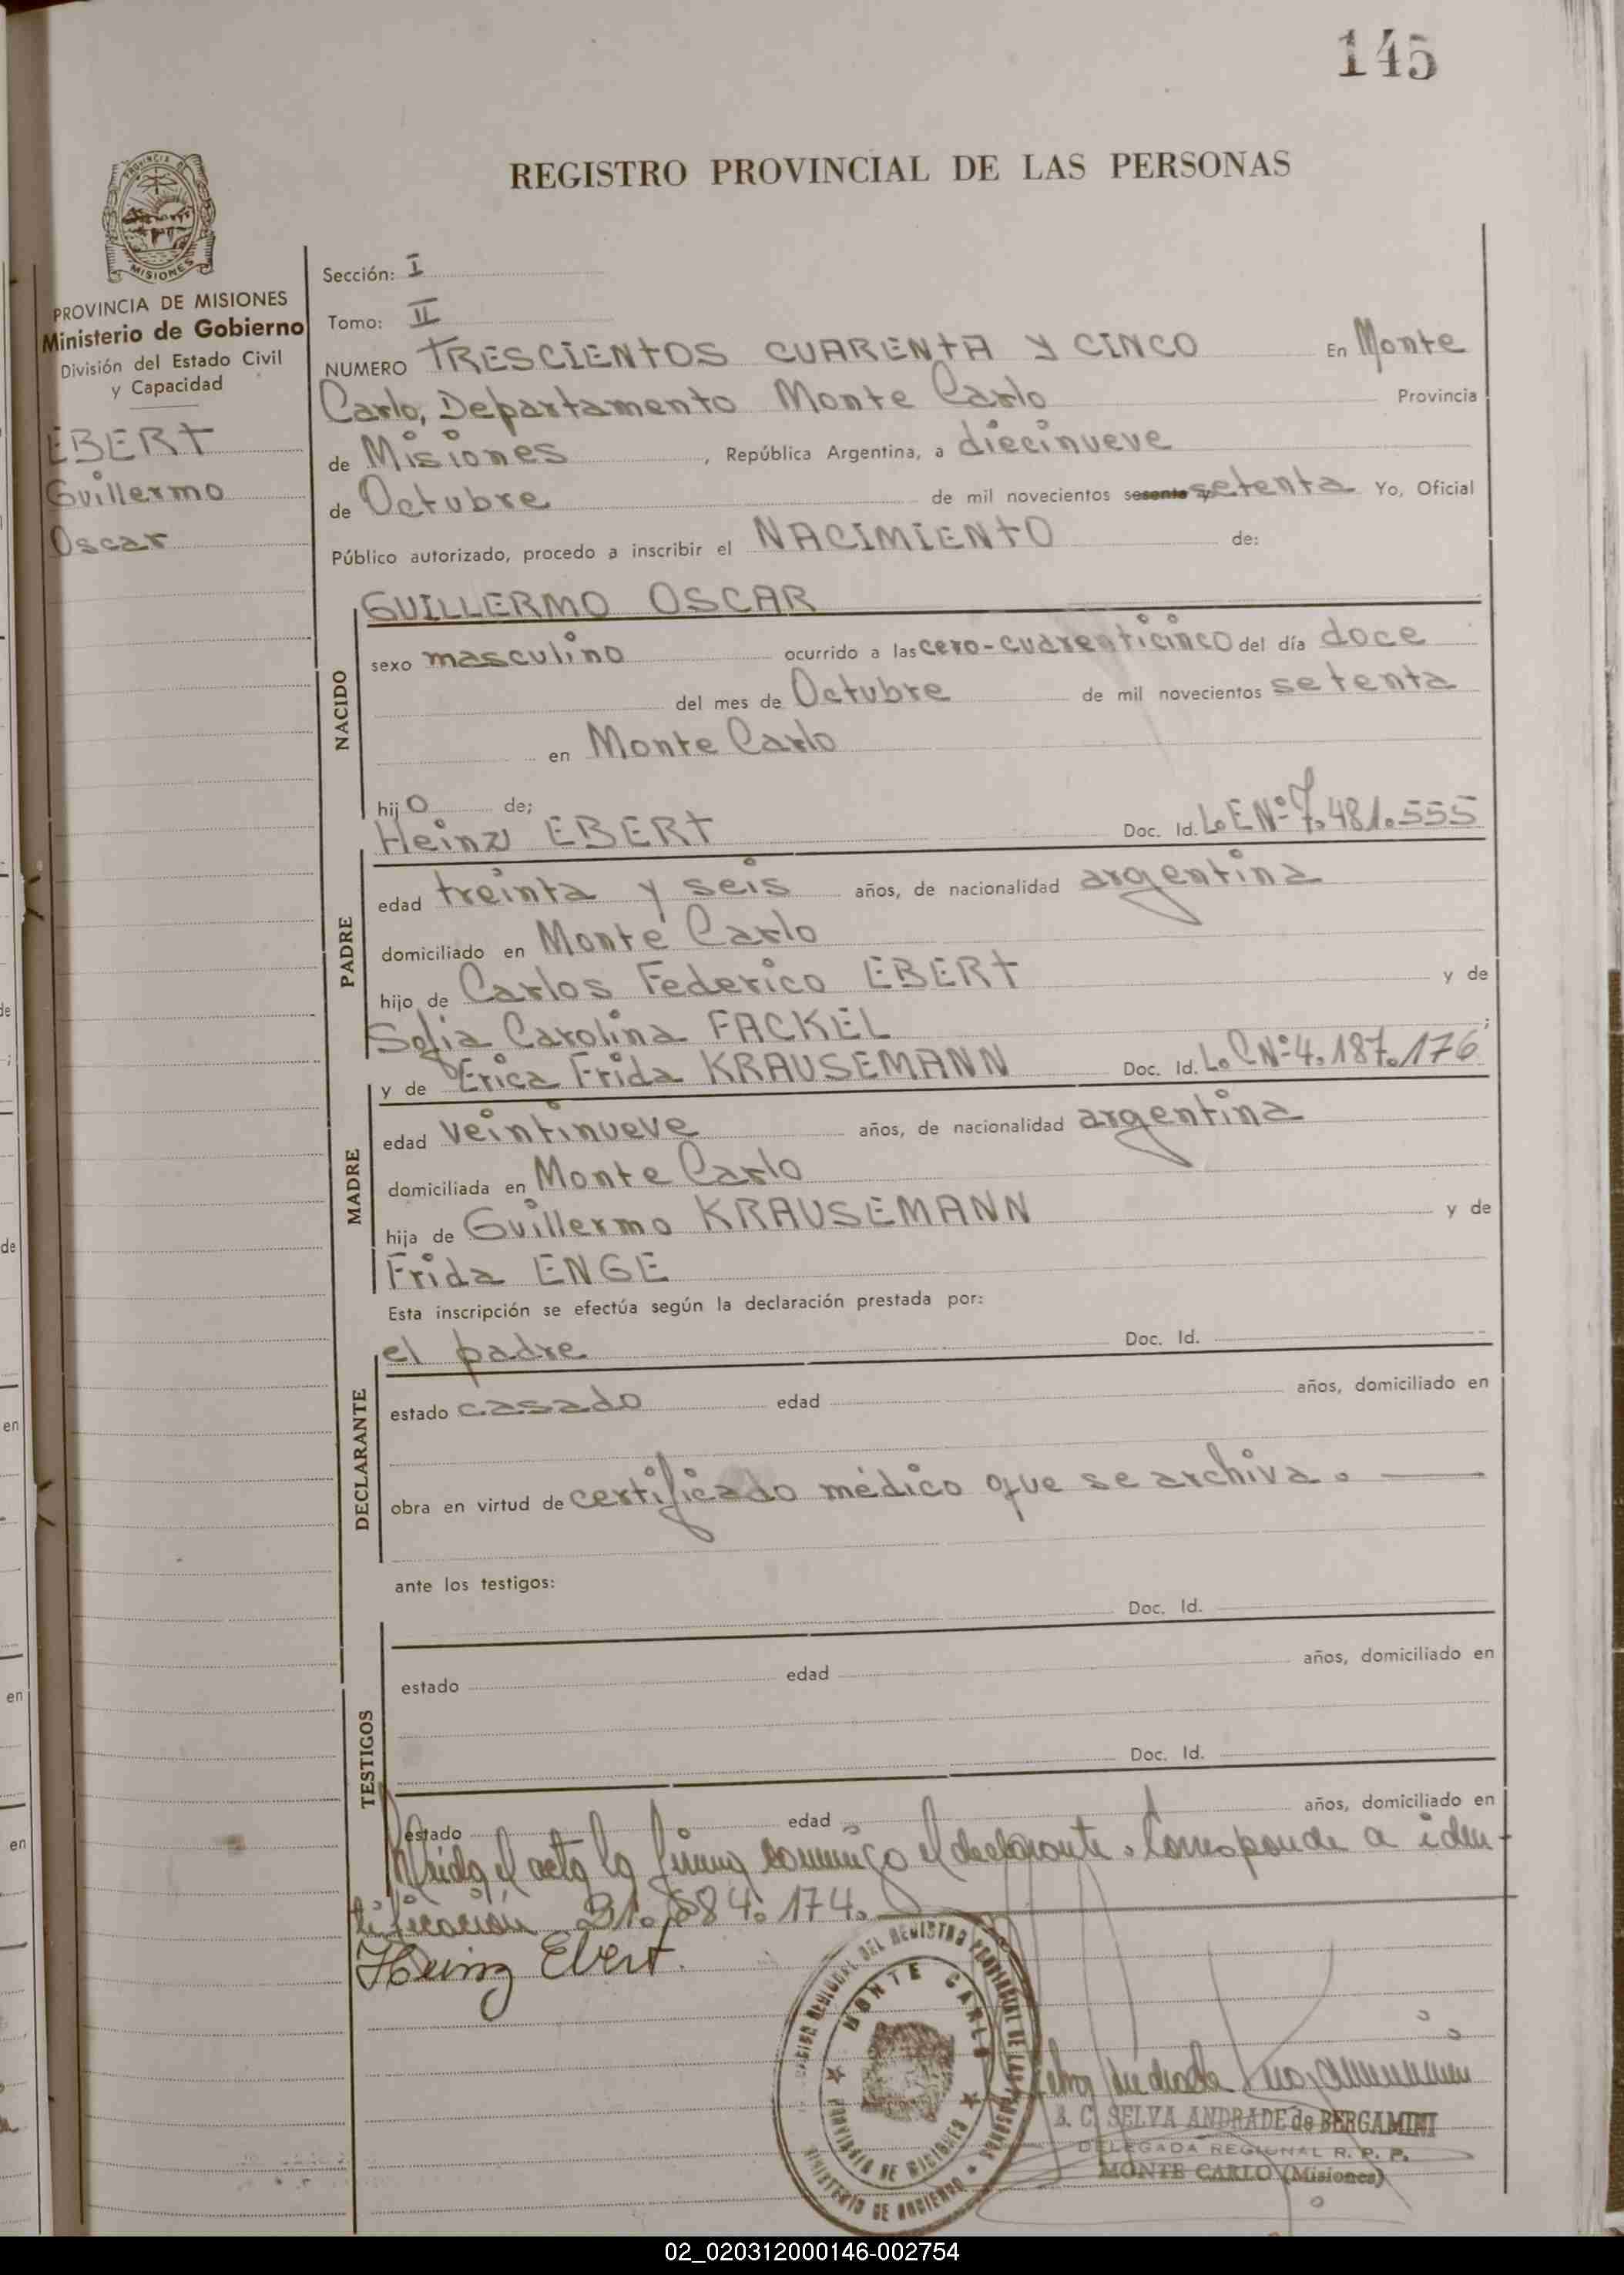 145
REGISTRO PROVINCIAL DE LAS PERSONAS
PROVINCIA DE MISIONES
PROVINCIA DE MISIONES
Ministerio de Gobierno
División del Estado Civil
y Capacidad
EBERT
Guillermo
Oscar
Sección: I
Tomo: II
NUMERO TRESCIENTOS CUARENTA Y CINCO En Monte
Carlo, Departamento Monte Carlo Provincia
de Misiones, República Argentina, a diecinueve
de Octubre de mil novecientos sesenta y setenta Yo, Oficial
Público autorizado, procedo a inscribir el NACIMIENTO de:
NACIDO
GUILLERMO OSCAR
sexo masculino ocurrido a las cero-cuarenticinco del día doce
del mes de Octubre de mil novecientos setenta
en Monte Carlo
hijo de;
PADRE
Heinz EBERT Doc. Id. L.E Nº 7.481.555
edad treinta y seis años, de nacionalidad argentina
domiciliado en Monte Carlo
hijo de Carlos Federico EBERT y de
Sofia Carolina FACKEL ;
MADRE
y de Erica Frida KRAUSEMANN Doc. Id. L.C Nº 4.187.176
edad veintinueve años, de nacionalidad argentina
domiciliada en Monte Carlo
hija de Guillermo KRAUSEMANN y de
Frida ENGE
Esta inscripción se efectúa según la declaración prestada por:
DECLARANTE
el padre Doc. Id.
estado casado edad años, domiciliado en
obra en virtud de certificado médico que se archiva.
ante los testigos:
TESTIGOS
Doc. Id.
estado edad años, domiciliado en
Doc. Id.
estado edad años, domiciliado en
el acta la firma conmigo el declarante. Corresponde a iden-
tificación 21.684.174.
Heinz Ebert.
REGIONAL DEL REGISTRO PROVINCIAL DE LAS PERSONAS
MONTE CARLO
PROVINCIA DE MISIONES
MINISTERIO DE GOBIERNO
B. C. SELVA ANDRADE de BERGAMINI
DELEGADA REGIONAL R. P. P.
MONTE CARLO (Misiones)
02_020312000146-002754